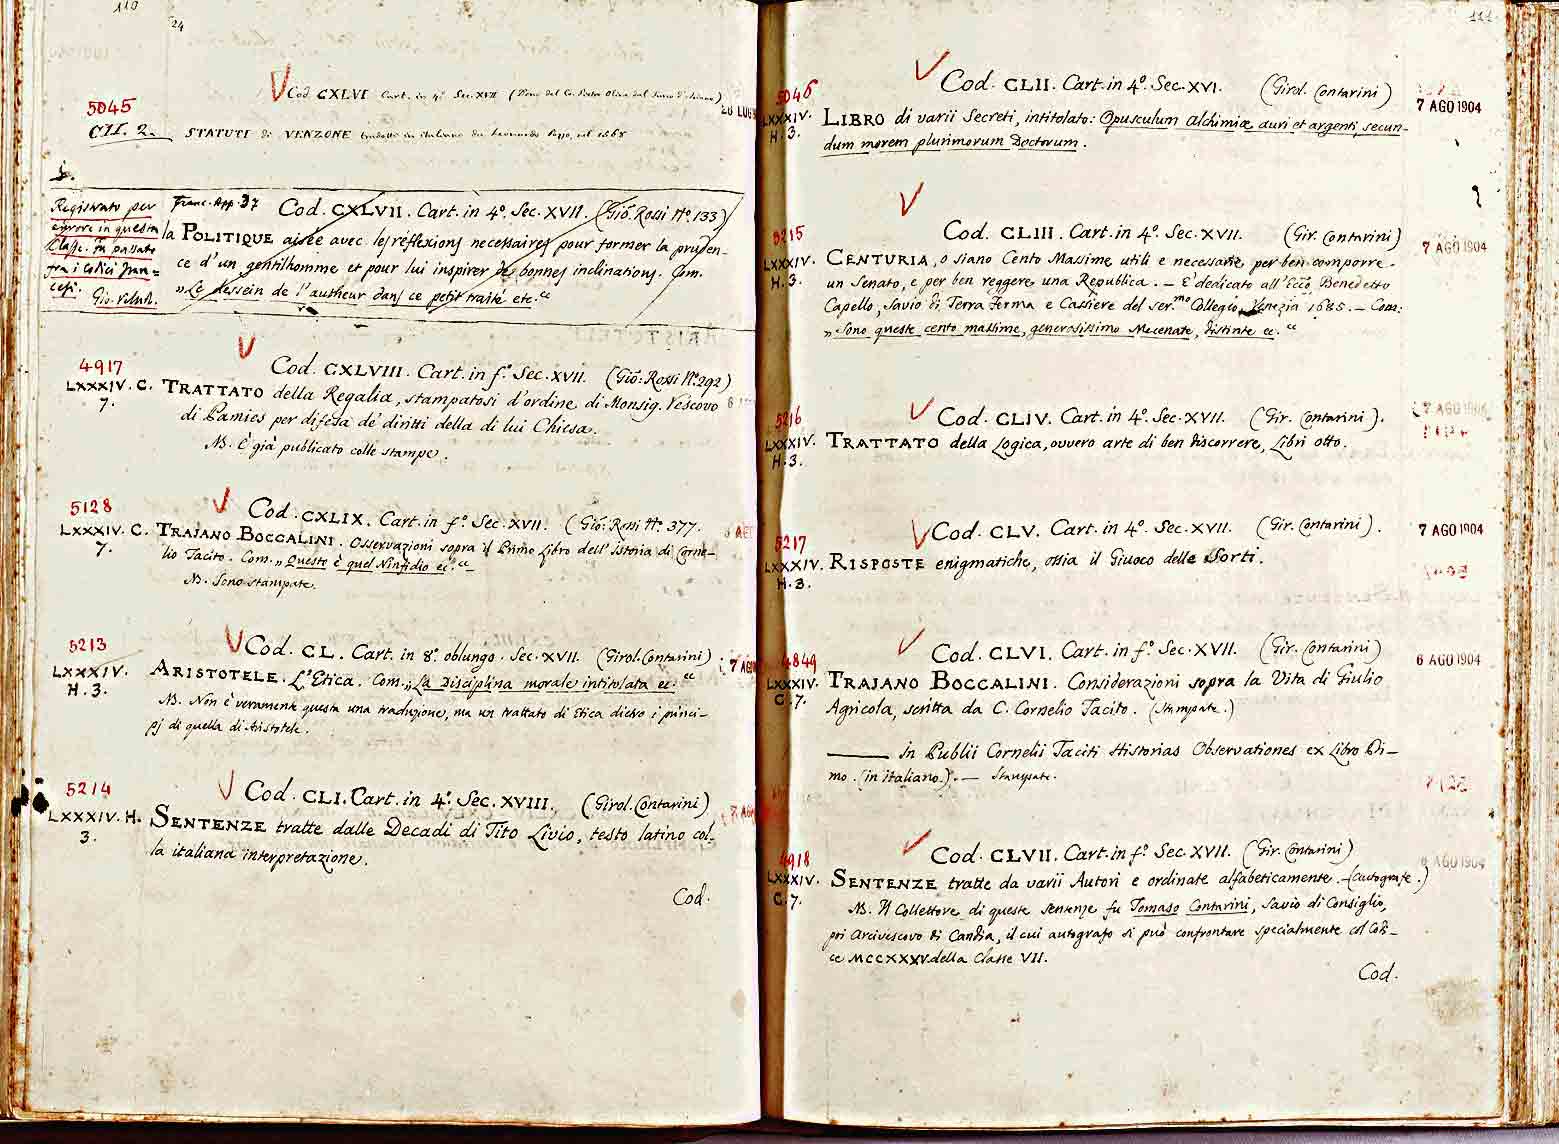 110
24
5045
CII. 2.
Cod. CXLVI Cart. in 4º. Sec. XVII
28 LUG
STATUTI di VENZONE tradotti in italiano da
Registrato per
errore in questa
Classe. Fu passato
fra i Codici fran=
cesi.
Franc. App. 37 Cod. CXLVII. Cart. in 4º. Sec. XVII. (Gio. Rossi Nº. 133)
la POLITIQUE aisée avec les réflexions necessaires pour former la pruden-
ce d'un gentilhomme et pour lui inspirer de bonnes inclinations. Com.
„Le dessein de l'autheur dans ce petit traité etc.“
4917
LXXXIV. C.
7.
Cod. CXLVIII. Cart. in fº. Sec. XVII. (Gio: Rossi Nº. 292)
TRATTATO della Regalia, stampatosi d'ordine di Monsig. Vescovo
di Pamies per difesa de' diritti della di lui Chiesa.
NB. È già publicato colle stampe.
5128
LXXXIV. C.
7.
Cod. CXLIX. Cart. in fº. Sec. XVII. (Gio: Rossi Nº. 377.
TRAJANO BOCCALINI. Osservazioni sopra il Primo Libro dell'Istoria di Corne-
lio Tacito. Com. „Queste è quel Ninfidio ec.“
NB. Sono stampate.
5213
LXXXIV.
H. 3.
Cod. CL. Cart. in 8º. oblungo. Sec. XVII. (Girol. Contarini)
7 AGO
ARISTOTELE. L'Etica. Com. „La Disciplina morale intitolata ec.“
NB. Non è veramente questa una traduzione, ma un trattato di Etica dietro i princi-
pj di quella di Aristotele.
5214
LXXXIV. H.
3.
Cod. CLI. Cart. in 4º. Sec. XVIII. (Girol. Contarini)
7 AGO
SENTENZE tratte dalle Decadi di Tito Livio, testo latino col-
la italiana interpretazione.
Cod.
111
5046
LXXXIV.
H. 3.
Cod. CLII. Cart. in 4º. Sec. XVI. (Girol. Contarini)
7 AGO 1904
LIBRO di varii Secreti, intitolato: Opusculum Alchimiæ auri et argenti, secun-
dum morem plurimorum Doctorum.
5215
LXXXIV.
H. 3.
Cod. CLIII. Cart. in 4º. Sec. XVII. (Gir. Contarini)
7 AGO 1904
CENTURIA, o siano Cento Massime utili e necessarie per ben comporre
un Senato, e per ben reggere una Republica. — È dedicato all'Ecc.º Benedetto
Capello, Savio di Terra Ferma e Cassiere del ser.mo Collegio, Venezia 1685. — Com:
„Sono queste cento massime, generosissimo Mecenate, distinte ec.“
5216
LXXXIV.
H. 3.
Cod. CLIV. Cart. in 4º. Sec. XVII. (Gir. Contarini).
7 AGO 1904
TRATTATO della Logica, ovvero arte di ben discorrere, Libri otto.
5217
LXXXIV.
H. 3.
Cod. CLV. Cart. in 4º. Sec. XVII. (Gir. Contarini).
7 AGO 1904
RISPOSTE enigmatiche, ossia il Giuoco delle Sorti.
4849
LXXXIV.
C. 7.
Cod. CLVI. Cart. in fº. Sec. XVII. (Gir. Contarini)
6 AGO 1904
TRAJANO BOCCALINI. Considerazioni sopra la Vita di Giulio
Agricola, scritta da C. Cornelio Tacito. (Stampate.)
——— in Publii Cornelii Taciti Historias Observationes ex Libro Pi-
mo. (in italiano.). — Stampate.
4918
LXXXIV.
C. 7.
Cod. CLVII. Cart. in fº. Sec. XVII. (Gir. Contarini)
6 AGO 1904
SENTENZE tratte da varii Autori e ordinate alfabeticamente. (autografe.)
NB. Il Collettore di queste sentenze fu Tomaso Contarini, Savio di Consiglio,
poi Arcivescovo di Candia, il cui autografo si può confrontare specialmente col Codi-
ce MCCXXXV. della Classe VII.
Cod.